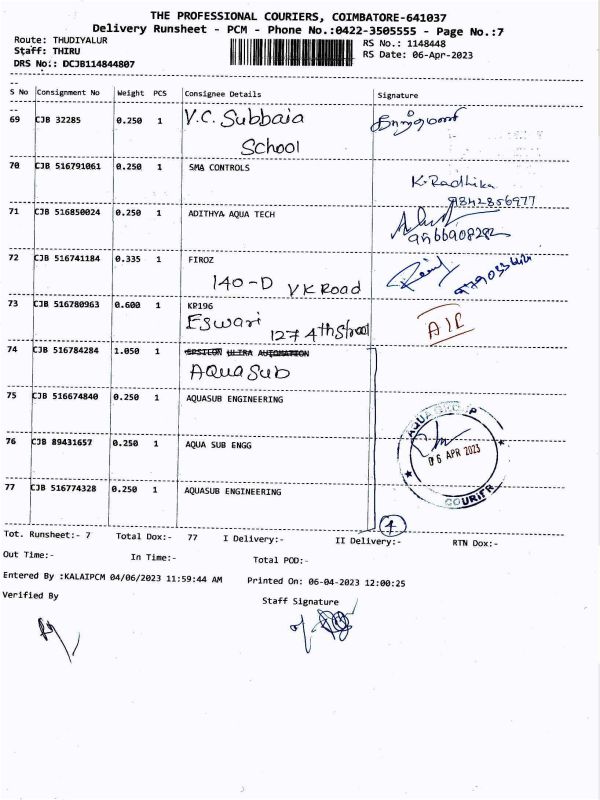 THE PROFESSIONAL COURIERS, COIMBATORE-641037
Delivery Runsheet - PCM - Phone No.:0422-3505555 - Page No.:7
Route: THUDIYALUR
RS No.: 1148448
Staff: THIRU
RS Date: 06-Apr-2023
DRS No:: DCJB114844807
S No Consignment No Weight PCS Consignee Details Signature
69 CJB 32285 0.250 1 V.C. Subbaia
School
70 CJB 516791061 0.250 1 SMA CONTROLS
K. Radhika
9842856977
71 CJB 516850024 0.250 1 ADITHYA AQUA TECH
9566908282
72 CJB 516741184 0.335 1 FIROZ
140-D VK Road
73 CJB 516780963 0.600 1 KP196
Eswari 127 4th Street
74 CJB 516784284 1.050 1 EPSILON ULTRA AUTOMATION
Aqua Sub
75 CJB 516674840 0.250 1 AQUASUB ENGINEERING
76 CJB 89431657 0.250 1 AQUA SUB ENGG
AQUAGROUP
06 APR 2023
COURIER
77 CJB 516774328 0.250 1 AQUASUB ENGINEERING
4
Tot. Runsheet:- 7 Total Dox:- 77 I Delivery:- II Delivery:- RTN Dox:-
Out Time:- In Time:- Total POD:-
Entered By :KALAIPCM 04/06/2023 11:59:44 AM Printed On: 06-04-2023 12:00:25
Verified By Staff Signature